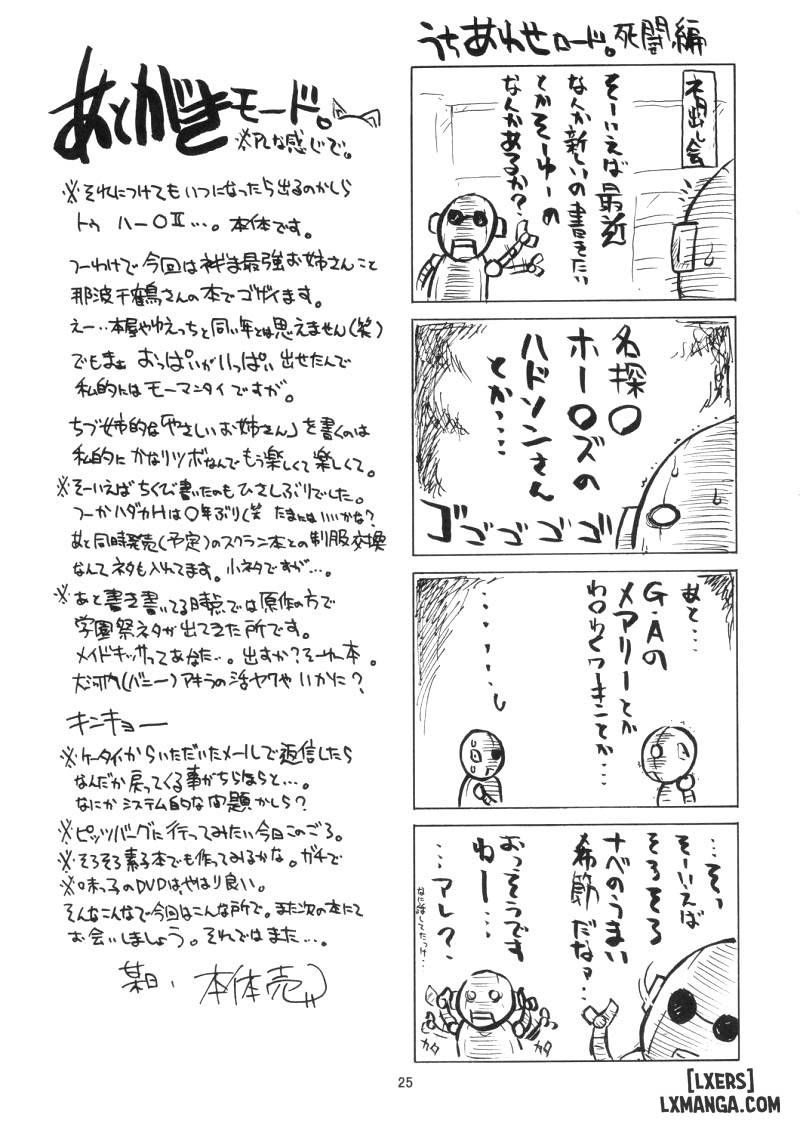 うちあわせロード。死闘編
ネタ出し会
そーいえば最近
なんか新しいの書きたい
とかそーゆーの
なんかあるか?
名探〇
ホー〇ズの
ハドソンさん
とか‥‥
ゴゴゴゴゴ
あと‥‥
G・Aの
メアリーとか
わ〇わくワーキンことか‥‥
‥‥そっ
そーいえば
そろそろ
ナベのうまい
季節だなァ‥‥
おっそうです
ねー‥‥
‥‥アレ?
なに話してたっけ‥‥
カタ
カタ
あとがきモード。
※PLな感じで。
※それにつけてもいつになったら出るのかしら
トゥ ハー〇Ⅱ‥‥。本体です。
つーわけで今回はネギま最強お姉さんこと
那波千鶴さんの本でゴザイます。
えー‥本屋やゆえっちと同い年とは思えません(笑)
でもまぁ おっぱいがいっぱい出せたんで
私的にはモーマンタイですが。
ちづ姉的な「やさしいお姉さん」を書くのは
私的にかなりツボなんでもう楽しくて楽しくて。
※そーいえばちくび書いたのもひさしぶりでした。
つーかハダカHは〇年ぶり(笑 たまにはいいかな?
あと同時発売(予定)のスクラン本との制服交換
なんてネタも入れてます。小ネタですが‥‥。
※あと書き書いてる時点では原作の方で
学園祭ネタが出てきた所です。
メイドキッサってあなた‥‥。出すか?そーゆー本。
大河内(バニー)アキラの活ヤクやいかに?
キンキョー
※ケータイからいただいたメールで返信したら
なんだか戻ってくる事がちらほらと‥‥。
なにかシステム的な問題かしら?
※ピッツバーグに行ってみたい今日このごろ。
※そろそろ素子本でも作ってみるかな。ガチで
※味っ子のDVDは、やはり良い。
そんなこんなで今回はこんな所で。また次の本にて
お会いしましょう。それではまた‥‥。
某日、本体売
25
[LXERS]
LXMANGA.COM